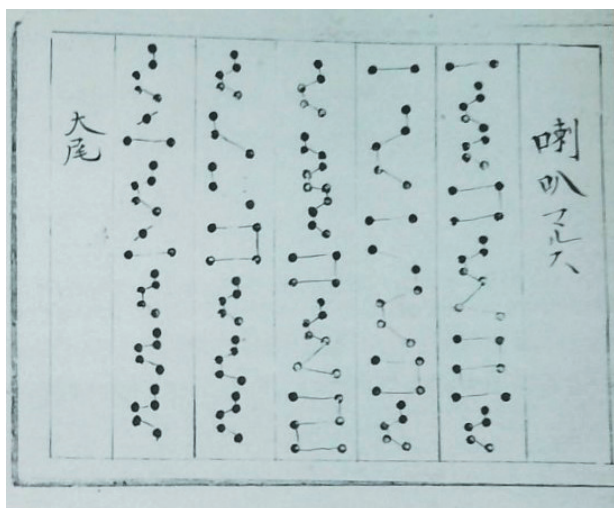 喇叭マルス
大尾